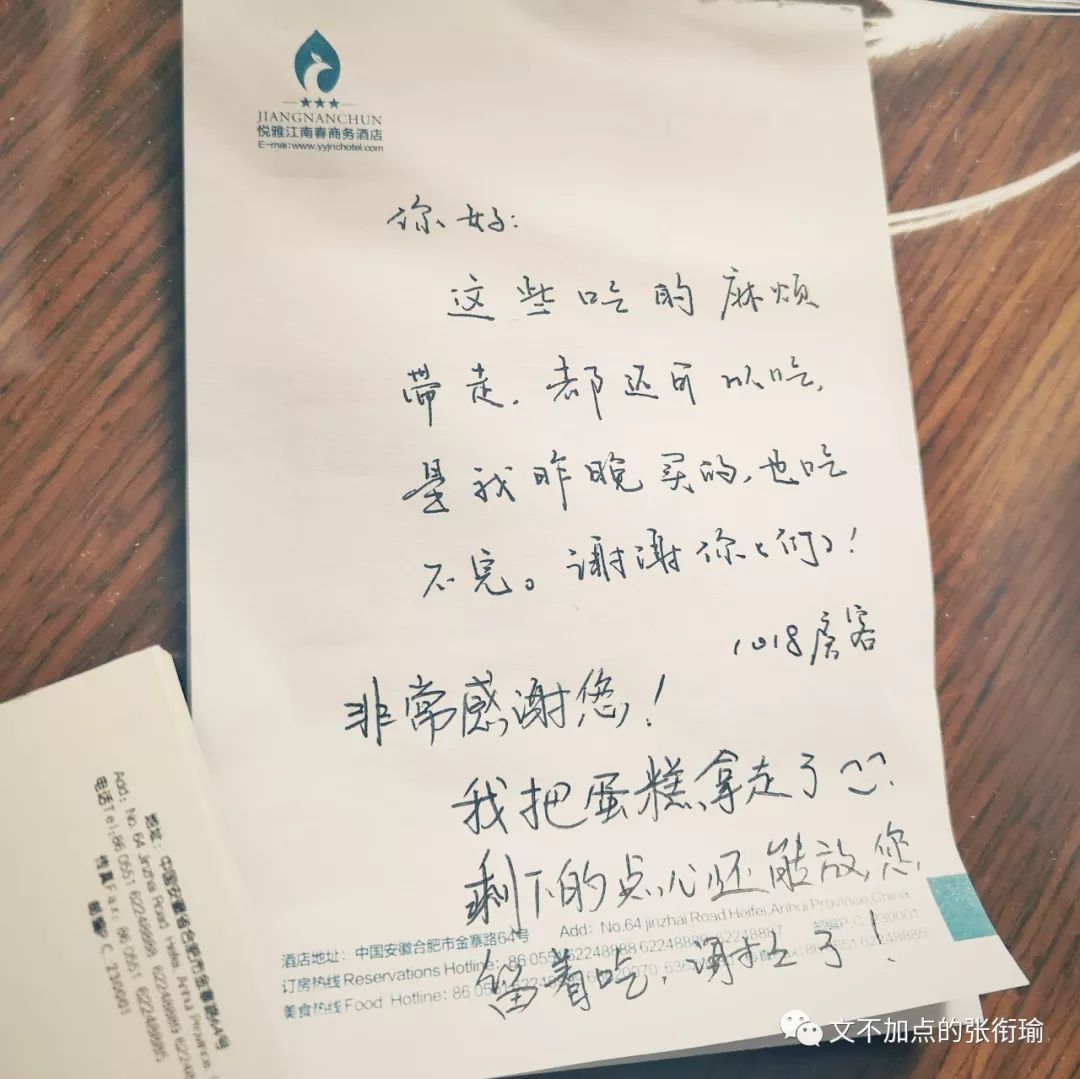 JIANGNANCHUN
悦雅江南春商务酒店
E-mai:www.yyjnchotel.com
你好:
这些吃的麻烦
带走,都还可以吃,
是我昨晚买的,也吃
不完。谢谢你(们)!
1018房客
非常感谢您!
我把蛋糕拿走了
剩下的点心还能放,您
留着吃,谢谢了!
Add: No.64 jinzhai Road Heifei,Anhui Province,China
酒店地址: 中国安徽合肥市金寨路64号
邮编P C. 230001
订房热线 Reservations Hotline: 86 0551 62248888 62248889 62248887
美食热线 Food Hotline: 86 0551
地址: 中国安徽省合肥市金寨路64号
Add: No. 64 Jinzhai Road Hefei, Anhui Province,
电话Tel:86 0551 62248888 62248889 622488
传真Fax: 86 0551 62248885
邮编P C. 230001
文不加点的张衔瑜